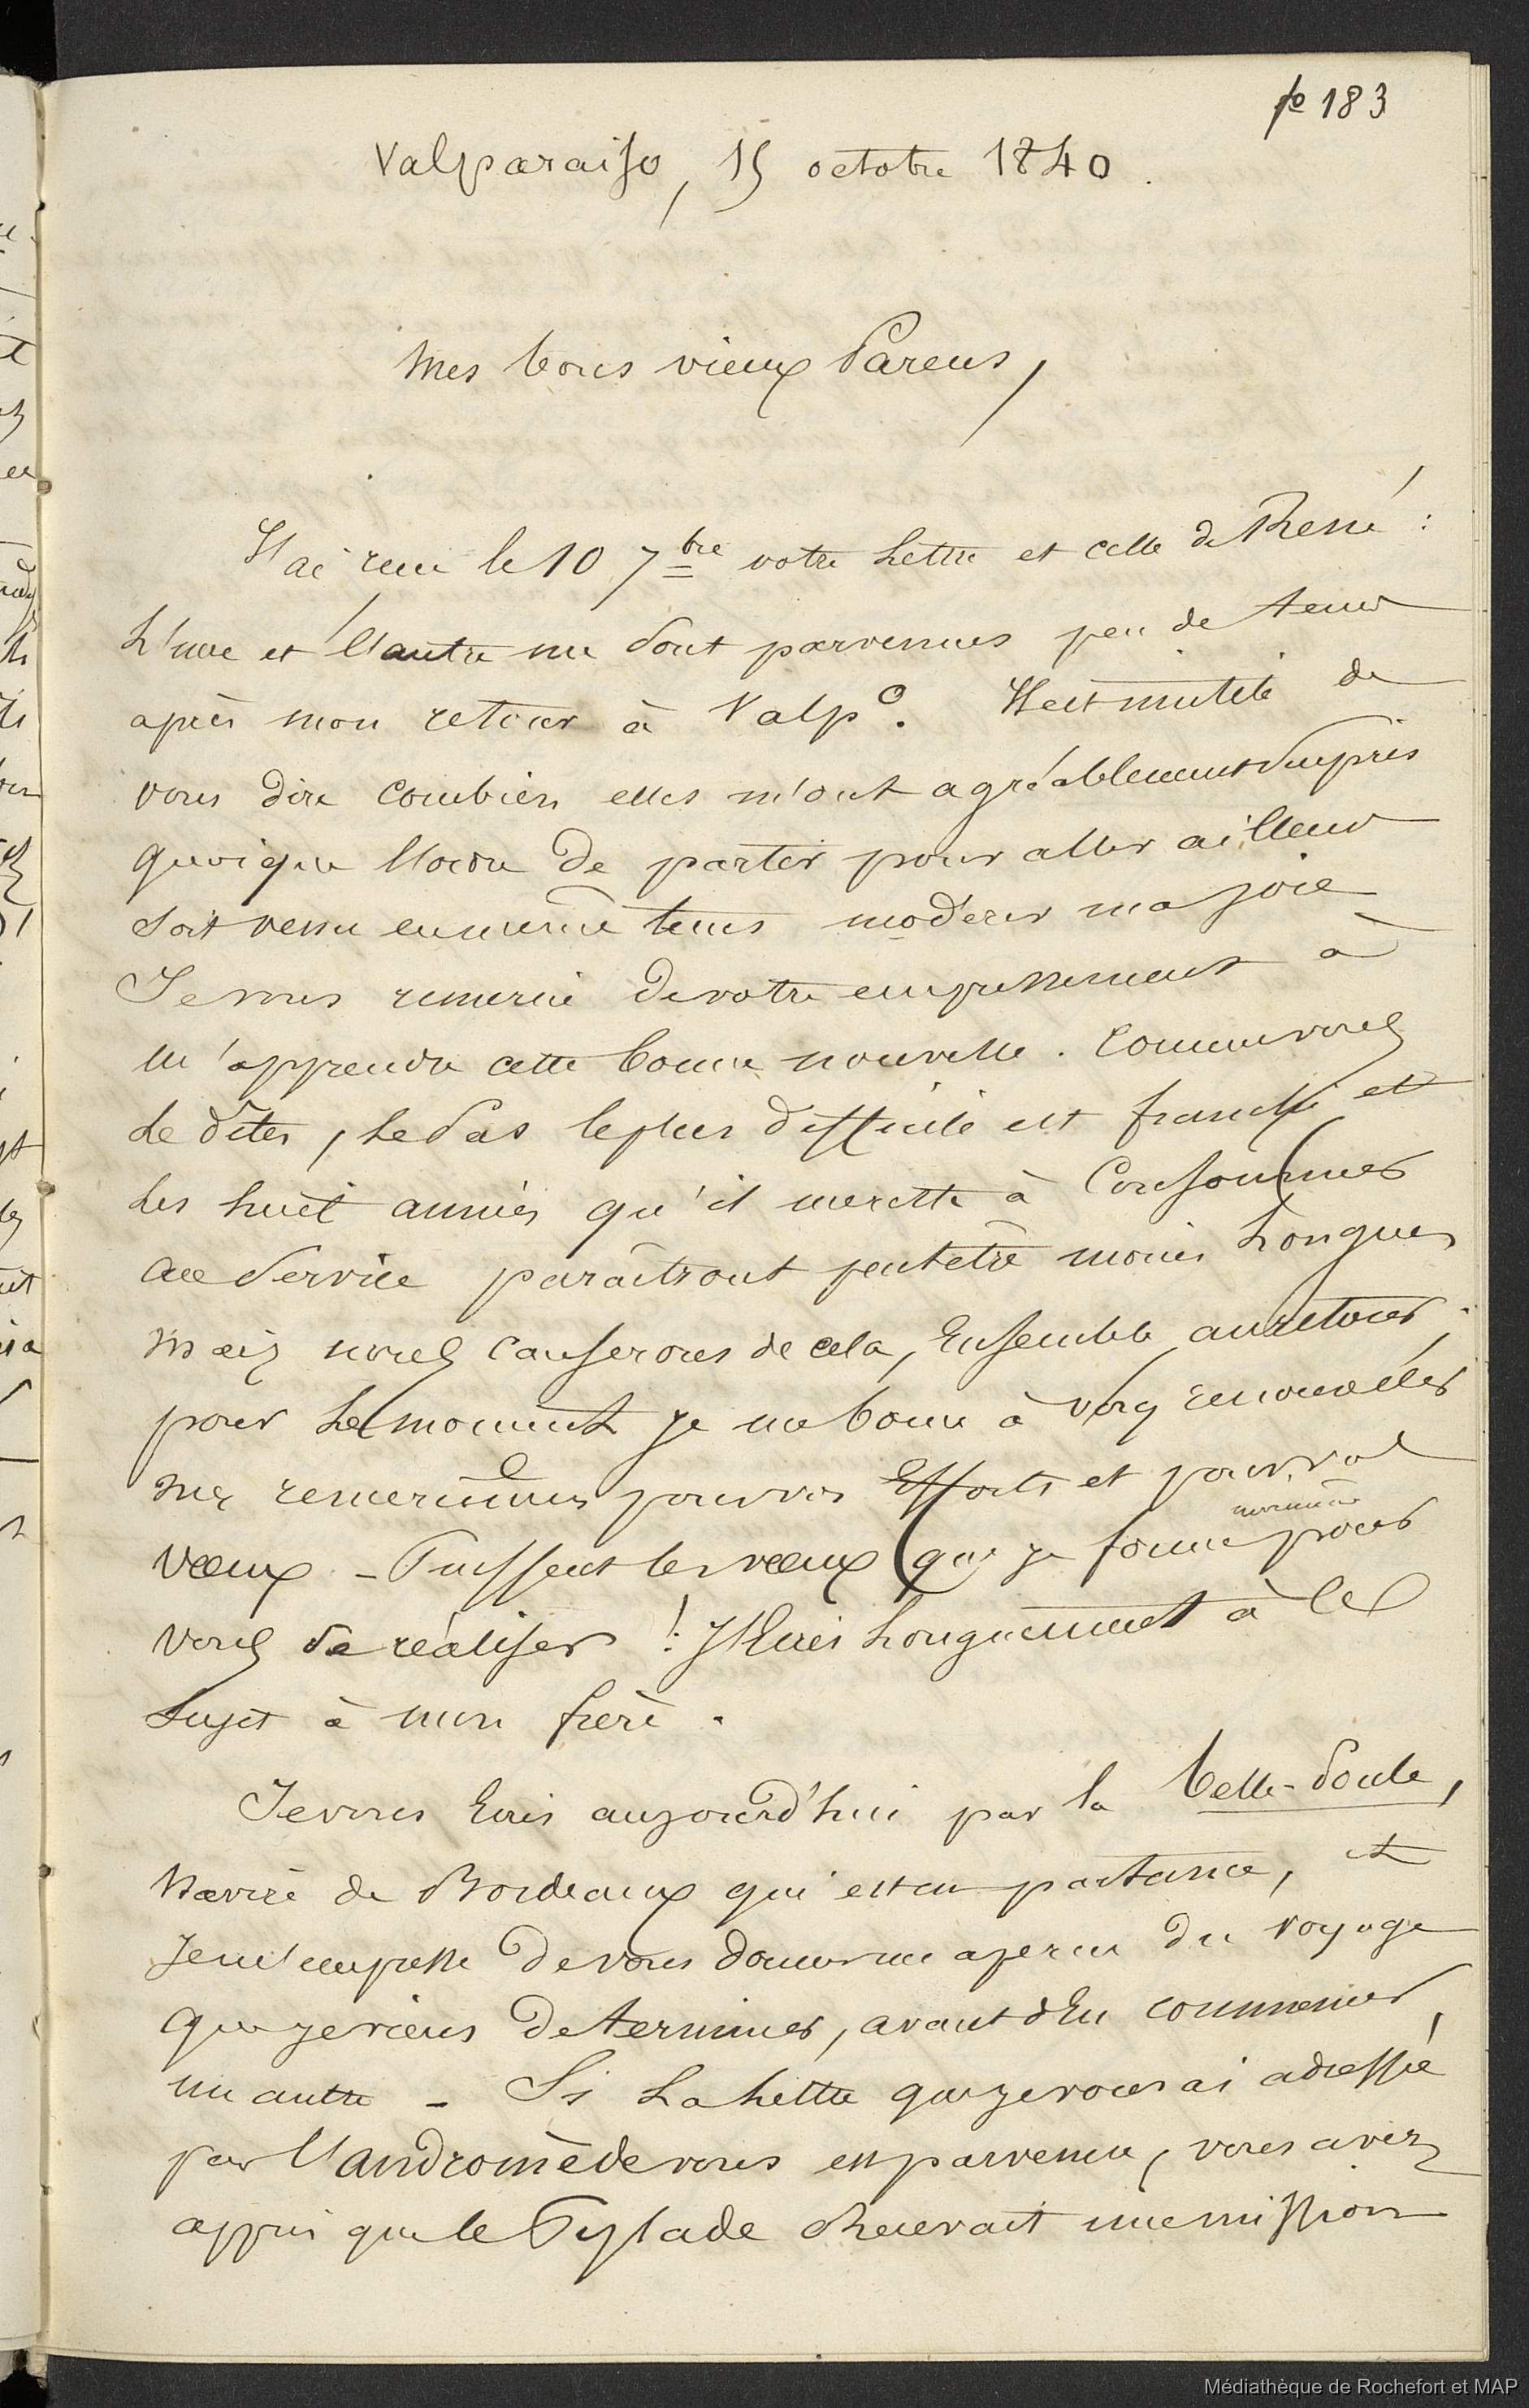 fo 183
Valparaiso, 15 octobre 1840.
Mes bons vieux Parens,
J'ai reçu le 10 7bre votre Lettre et celle de René :
L'une et l'autre me sont parvenues peu de tems
après mon retour à Valpo. Il est inutile de
vous dire combien elles m'ont agréablement surpris
quoique l'ordre de partir pour aller ailleurs
soit venu en même tems modérer ma joie
Je vous remercie de votre empressement à
m'apprendre cette bonne nouvelle. Comme vous
Le dîtes, Le Pas le plus difficile est franchi et
les huit années qu'il me reste à Consommer
au Service paraîtront peut être moins Longues
Mais nous causerons de cela, Ensemble au retour ;
pour Le moment je me borne à vous renouveller
mes remerciemens pour vos Efforts et pour vos
vœux - Puissent les vœux que je forme moi même pour
vous se réaliser ! J'Ecris Longuement à ce
Sujet à mon frère.
Je vous Ecris aujourd'hui par la belle-Poule,
Navire de Bordeaux qui est en partance, et
Je m'empresse de vous donner un aperçu du voyage
que je viens de terminer, avant d'En commencer
un autre - Si La Lettre que je vous ai adressée
par l'Andromède vous est parvenue, vous avez
appris que le Pylade recevait une mission
Médiathèque de Rochefort et MAP